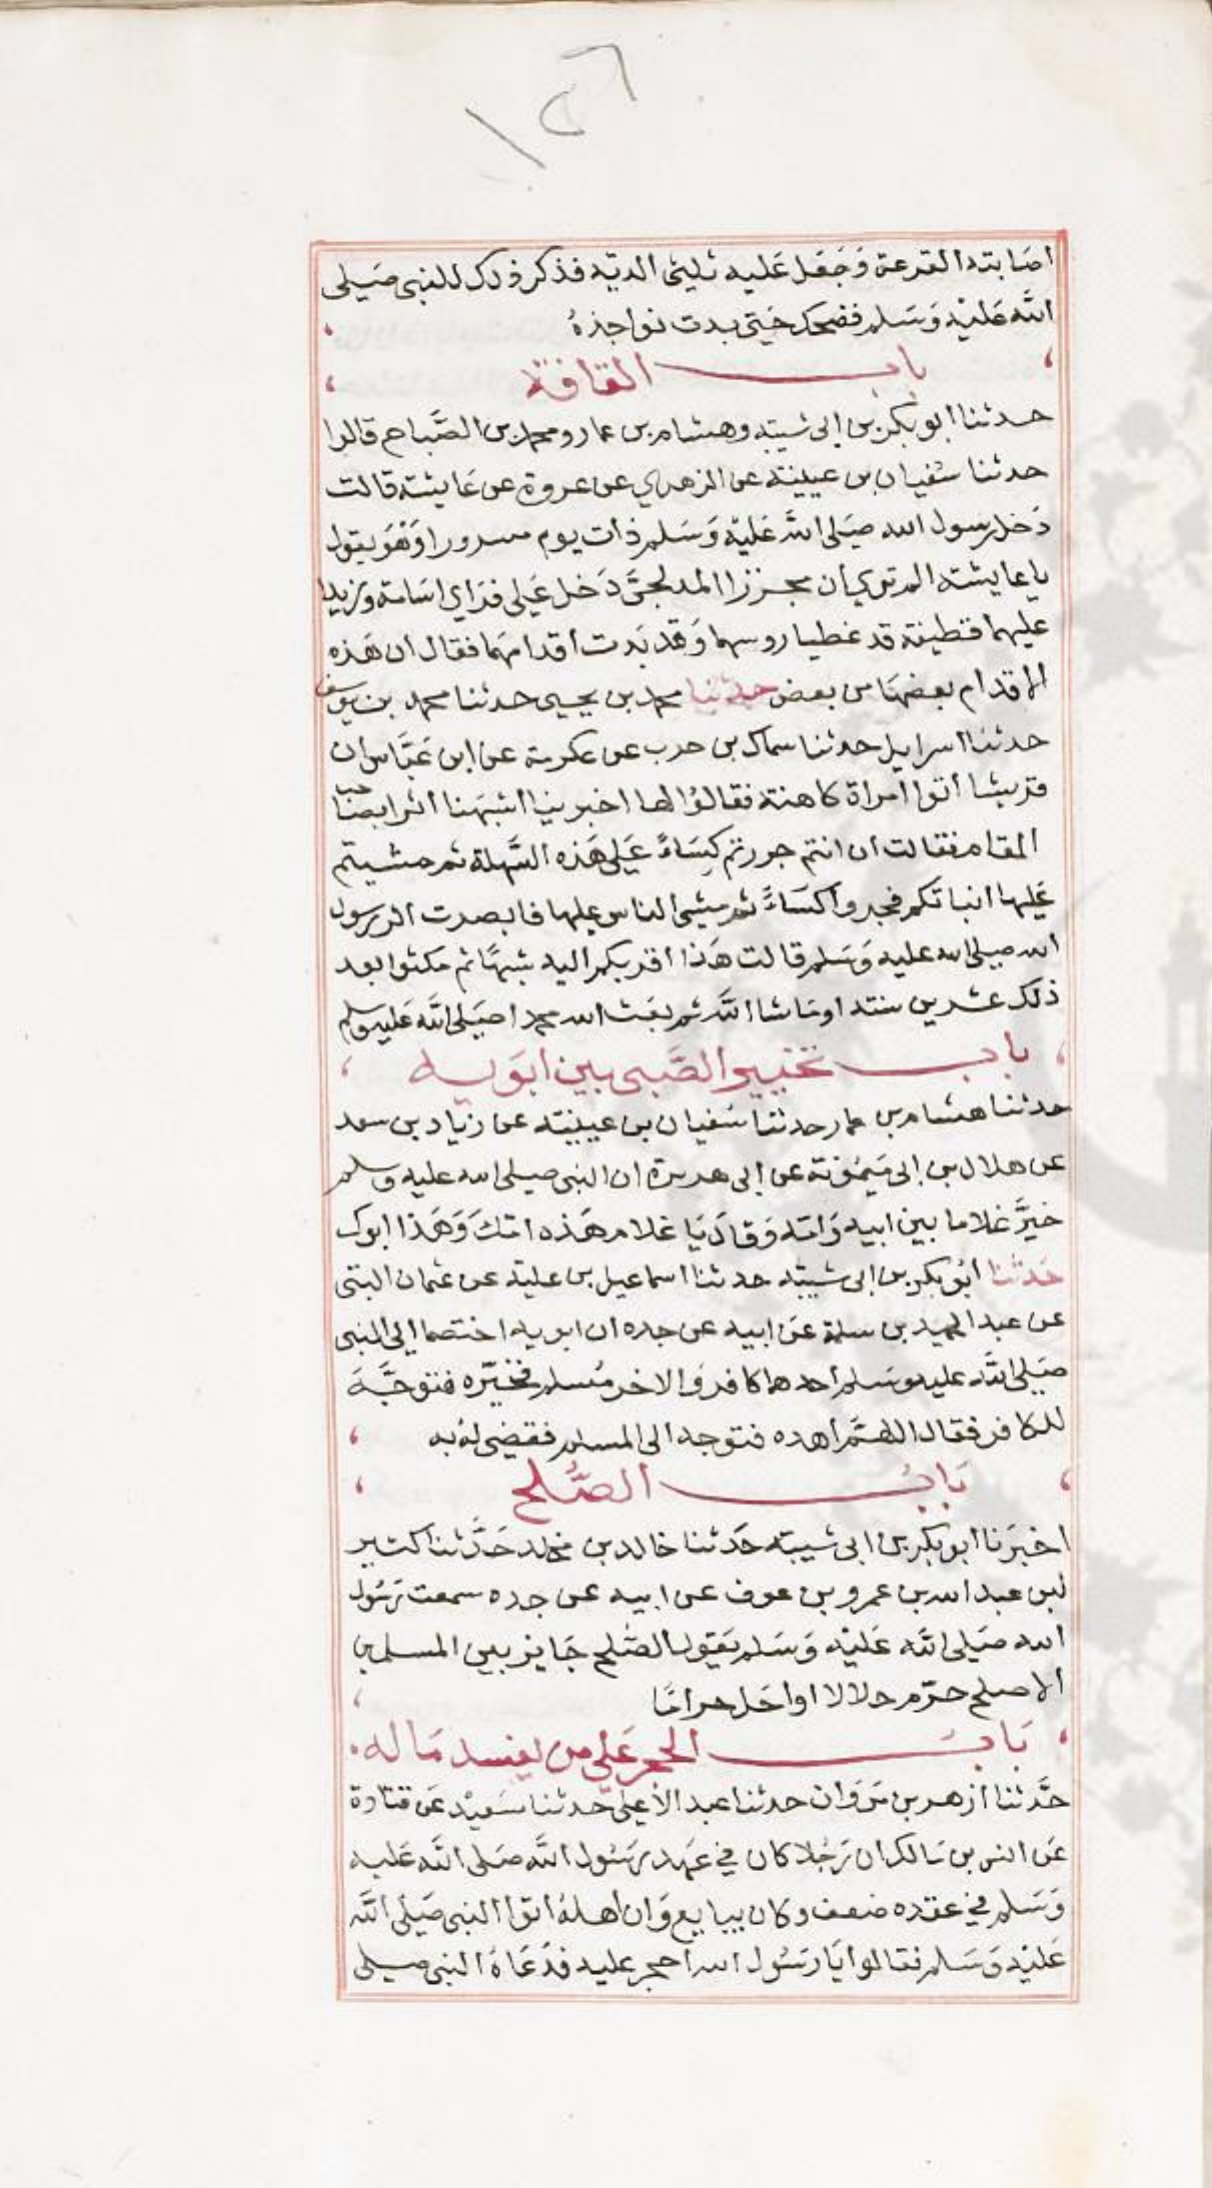 ١٥٦
اصَابته القرعة وَجَعَل عَليه ثلثي الدية فذكر ذلك للنبي صَلى
الله عَليْه وَسَلم فضحك حَتى بدت نواجذهُ
باب القافة
حدثنا ابو بكر بن ابي شيبة وهشام بن عمار ومحمد بن الصَّباح قالوا
حدثنا سُفيان بن عيينة عن الزهري عن عروة عن عَايشة قالت
دَخل رسول الله صَلى الله عَليْه وَسَلم ذات يوم مسرورا وَهْوَ يقول
يا عايشة الم تري أن مجززا المدلجيَّ دَخل عَلي فرَاي اسَامة وزيدا
عليهما قطيفة قد غطيا روسهما وَقد بَدت أقدامهَما فقال ان هَذه
الاقدام بعضهَا من بعض حدثنا محمد بن يحيى حدثنا محمد بن يوسف
حدثنا اسرايل حدثنا سماك بن حرب عن عكرمة عن ابن عَبَّاس ان
قريشا أتوا أمراة كاهنة فقالوُا لها اخبرينا أشبَهنا أثرا بصَاحب
المقام فقالت ان انتم جررتم كِسَاءً عَلى هَذه السَّهلة ثم مشيتم
عَليها انباتكم فجروا كسَاءً ثم مشى الناس عليها فابصرت اثر رسول
الله صلى الله عليه وَسَلم قالت هَذا أقربكم اليه شبهًا ثم مكثوا بعد
ذلك عشرين سنة اومَا شا الله ثم بعَث الله محمدا صَلى الله عَليه وسلم
باب تخيير الصَّبي بين ابوَيه
حدثنا هشام بن عمار حدثنا سُفيان بن عيينة عن زياد بن سعد
عن هلال بن ابي مَيمُونة عن ابي هريرة ان النبي صلى الله عليه وسلم
خيَّر غلاما بين ابيه وَامّه وَقال يَا غلام هَذه امّكَ وَهَذا ابوك
حَدثنا ابُو بكر بن ابي شيبة حدثنا اسماعيل بن علية عن عثمان البتي
عن عبد الحميد بن سلمة عَن ابيه عن جده ان ابويه اختصما الى النبي
صَلى الله عليه وسَلم أحدهما كافر وَالاخر مُسلم فخيّره فتوجَّهَ
للكافر فقال اللهمَّ أهده فتوجه الى المسلم فقضى لهُ به
بَابُ الصُّلح
اخبَرنا أبو بكر بن ابي شيبة حَدثنا خالد بن مخلد حَدَّثنا كثير
ابن عبد الله بن عمرو بن عوف عن ابيه عن جده سمعت رَسُول
الله صَلى الله عَليْه وَسَلم يَقول الصُّلح جَايز بين المسلمين
الا صلح حرّم حلالا او احَل حرامًا
بَابُ الحجر عَلي من يفسد مَاله
حدَّثنا أزهر بن مَروَان حدثنا عبد الأعلى حدثنا سَعيْد عَن قتادة
عَن انس بن مَالك ان رَجُلا كان في عَهد رَسُول الله صَلى الله عَليه
وَسَلم في عقده ضعف وكان يبايع وَان أهلهُ اتوا النبي صَلى الله
عَليْه وَسَلم فقالوا يَا رَسُول الله احجر عليه فدَعَاهُ النبي صلى